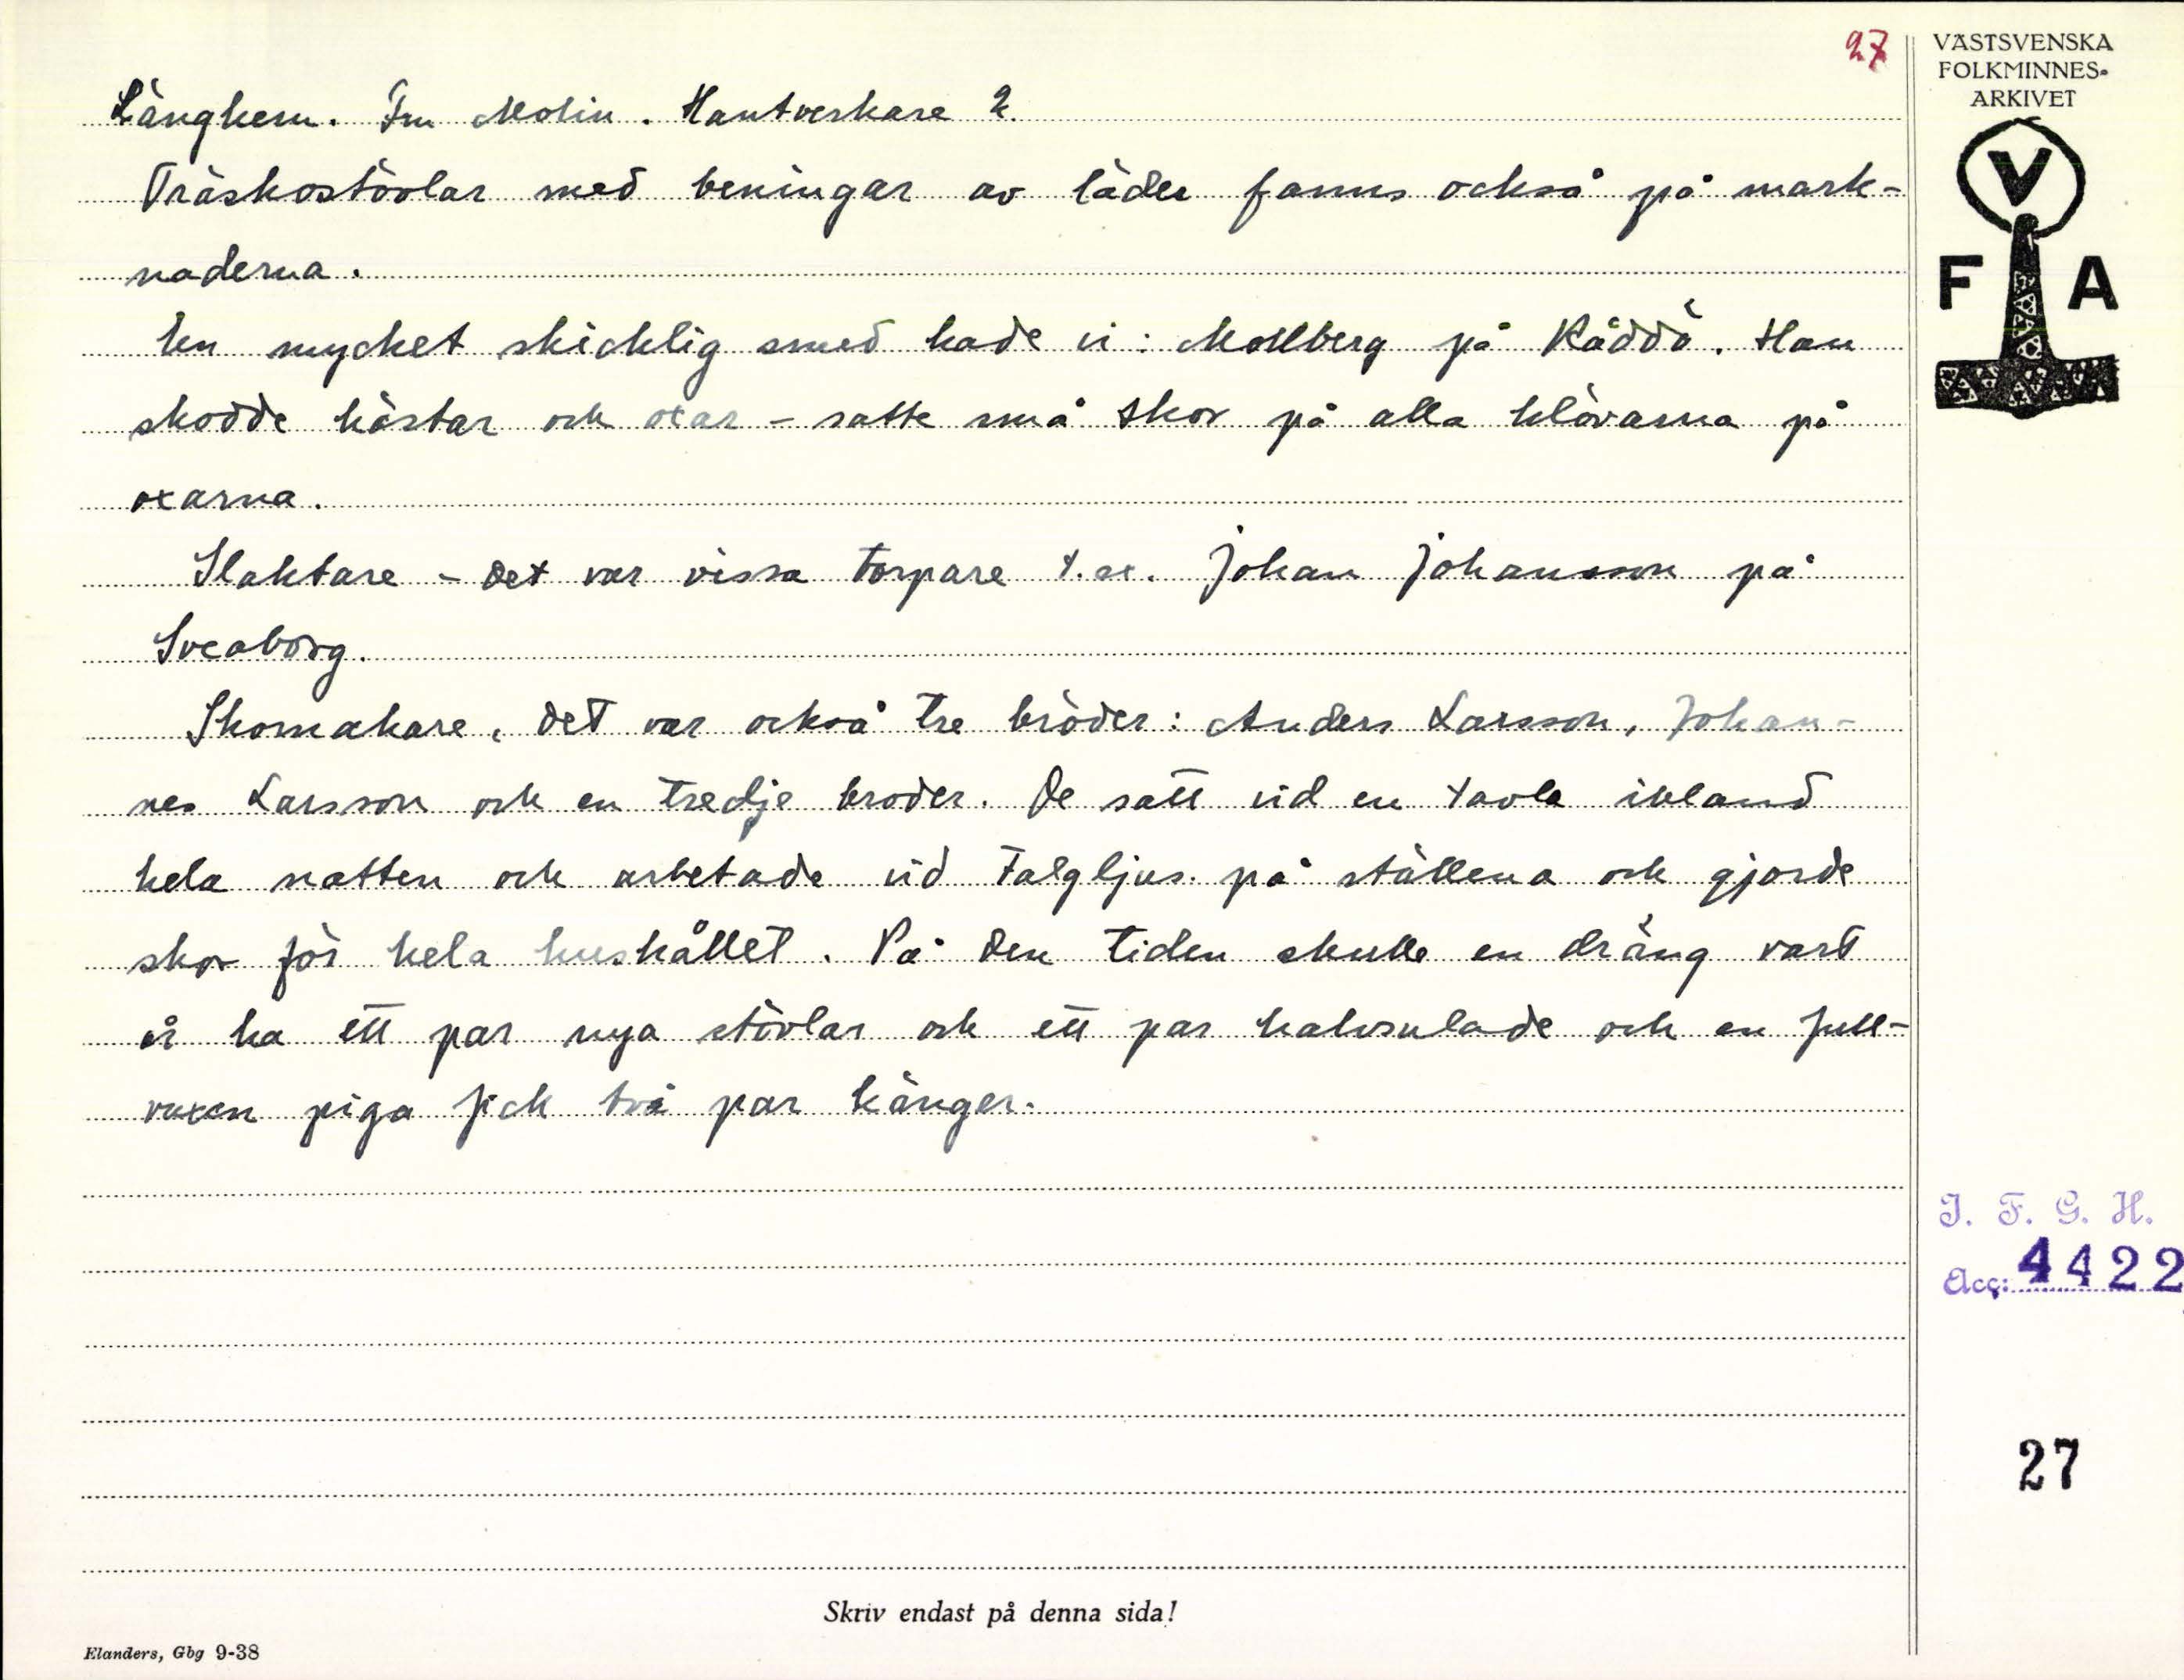 27
Länghem. Fru Molin. Hantverkare 2.
Träskostövlar med beningar av läder fanns också på mark-
naderna.
En mycket skicklig smed hade vi: Mollberg på Råddö. Han
skodde hästar och oxar – satte små skor på alla klövarna på
oxarna.
Slaktare – det var vissa torpare t.ex. Johan Johansson på
Sveaborg.
Skomakare, det var också tre bröder: Anders Larsson, Johan-
nes Larsson och en tredje broder. De satt vid en tavla ibland
hela natten och arbetade vid talgljus. på ställena och gjorde
skor för hela hushållet. På den tiden skulle en dräng vart
år ha ett par nya stövlar och ett par halvsulade och en full-
vuxen piga fick två par känger.
Skriv endast på denna sida!
Elanders, Gbg 9-38
VÄSTSVENSKA
FOLKMINNES-
ARKIVET
V
F A
I. F. G. H.
Acc: 4422
27